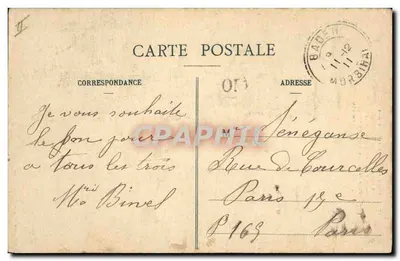 CARTE POSTALE
CORRESPONDANCE
ADRESSE
BADEN
12
11
MORBIHAN
OR
CPAPHIL
Je vous souhaite
le bon jour
a tous les trois
Binel
Mr Sénéganse
Rue de Courcelles
Paris 17e
P 165 Paris